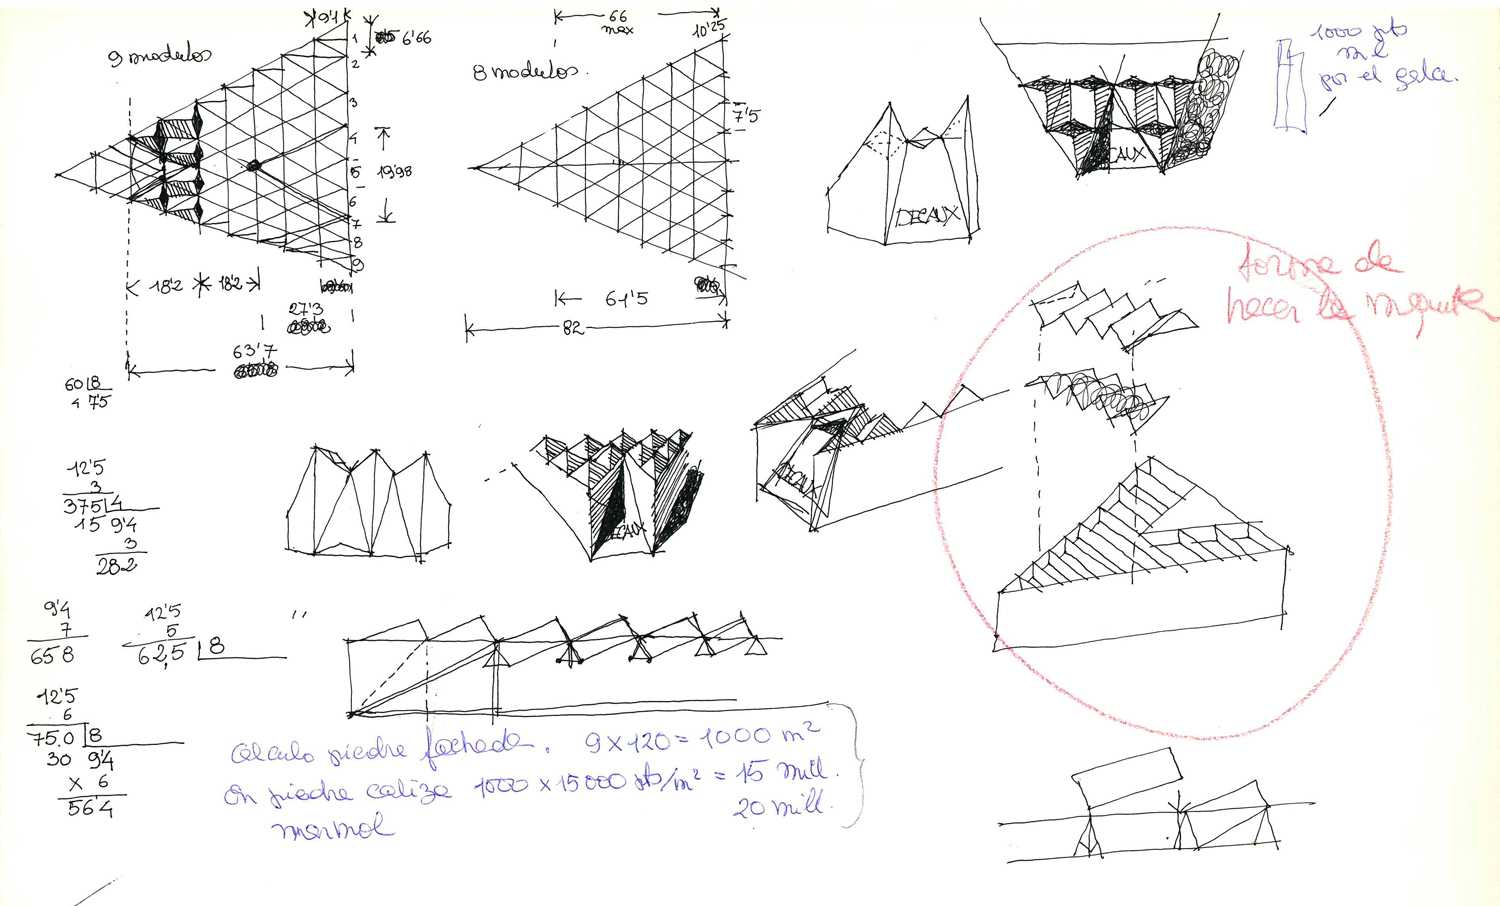 9'1
9 modulos
6'66
1
2
3
4
5
6
7
8
9
19'98
18'2
18'2
27'3
63'7
66
max
10'25
8 modulos.
7'5
61'5
82
DECAUX
CAUX
1000 pts
ml
por el
forma de
hacer la maqueta
60 8
4 7'5
12'5
3
375 4
15 9'4
3
282
9'4
7
658
12'5
5
62,5 8
12'5
6
75.0 8
30 9'4
x 6
564
DECAUX
DECAUX
Calculo piedra fachada. 9 x 120 = 1000 m²
En piedra caliza 1000 x 15000 pts/m² = 15 mill.
marmol 20 mill.